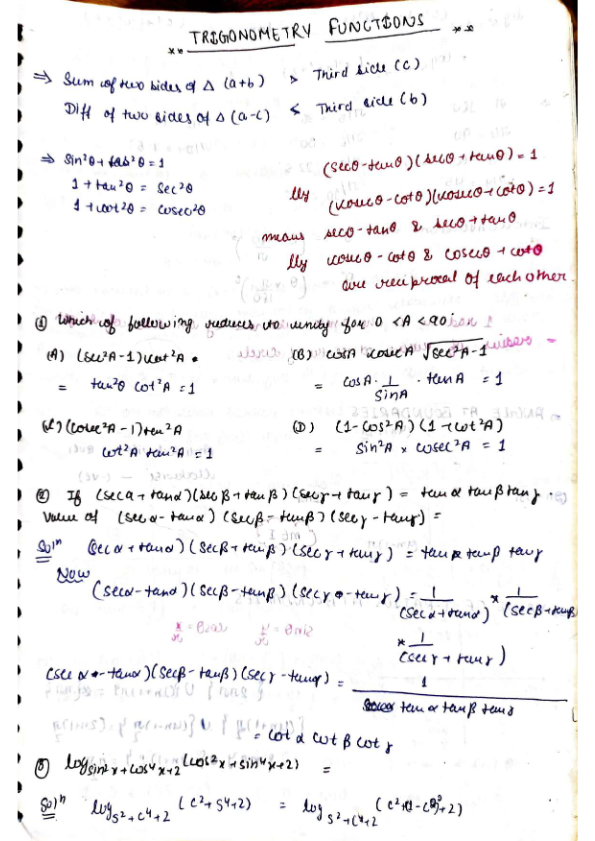 TRIGONOMETRY FUNCTIONS
⇒ Sum of two sides of Δ (a+b) > Third side (c)
Diff of two sides of Δ (a-c) < Third side (b)
⇒ Sin²θ + cos²θ = 1
1 + tan²θ = Sec²θ
1 + cot²θ = cosec²θ
(secθ - tanθ)(secθ + tanθ) = 1
lly (cosecθ - cotθ)(cosecθ + cotθ) = 1
means secθ - tanθ & secθ + tanθ
lly cosecθ - cotθ & cosecθ + cotθ
are reciprocal of each other.
① Which of following reduces to unity for 0 < A < 90°
(A) (sec²A - 1) cot²A (B) cosA cosecA √(sec²A - 1)
= tan²θ cot²A = 1 = cosA · 1/SinA · tanA = 1
(C) (cosec²A - 1) tan²A (D) (1 - cos²A)(1 + cot²A)
cot²A tan²A = 1 = Sin²A × cosec²A = 1
② If (secα + tanα)(secβ + tanβ)(secγ + tanγ) = tanα tanβ tanγ
value of (secα - tanα)(secβ - tanβ)(secγ - tanγ) =
Solⁿ (secα + tanα)(secβ + tanβ)(secγ + tanγ) = tanα tanβ tanγ
Now
(secα - tanα)(secβ - tanβ)(secγ - tanγ) = 1/(secα + tanα) × 1/(secβ + tanβ)
× 1/(secγ + tanγ)
(sec α - tanα)(secβ - tanβ)(secγ - tanγ) = 1/(tanα tanβ tanγ)
= cotα cotβ cotγ
③ log sin²x + cos⁴x + 2 (cos²x + sin⁴x + 2) =
Solⁿ log s² + c⁴ + 2 (c² + s⁴ + 2) = log s² + c⁴ + 2 (c² + (1 - c²)² + 2)